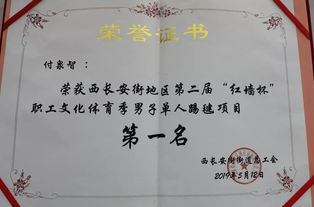 荣誉证书
付泉智：
荣获西长安街地区第二届“红墙杯”
职工文化体育季男子单人踢毽项目
第一名
西长安街街道总工会
2019年5月12日